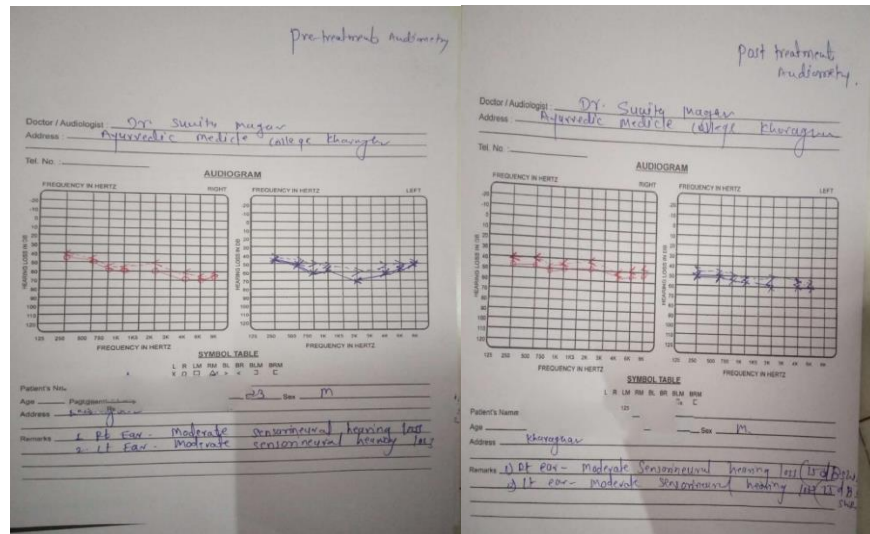 Pre-treatment Audiometry
Doctor / Audiologist : Dr Sunita Magar
Address : Ayurvedic Medicle College Kharaghar
Tel. No. :
AUDIOGRAM
FREQUENCY IN HERTZ RIGHT
FREQUENCY IN HERTZ LEFT
HEARING LOSS IN DB
-20
-10
0
10
20
30
40
50
60
70
80
90
100
110
120
125 250 500 750 1K 1K5 2K 3K 4K 6K 8K
FREQUENCY IN HERTZ
125 250 500 750 1K 1K5 2K 3K 4K 6K 8K
FREQUENCY IN HERTZ
SYMBOL TABLE
L R LM RM BL BR BLM BRM
Patient's No.
Age 23 Sex M
Address
Remarks 1. Rt Ear - Moderate sensorineural hearing loss
2. Lt Ear - Moderate sensorineural hearing loss
Post treatment
Audiometry.
Doctor / Audiologist : Dr. Sunita Magar
Address : Ayurvedic Medicle College Kharaghar
Tel. No. :
AUDIOGRAM
FREQUENCY IN HERTZ RIGHT
FREQUENCY IN HERTZ LEFT
HEARING LOSS IN DB
125 250 500 750 1K 1K5 2K 3K 4K 6K 8K
FREQUENCY IN HERTZ
125 250 500 750 1K 1K5 2K 3K 4K 6K 8K
FREQUENCY IN HERTZ
SYMBOL TABLE
L R LM RM BL BR BLM BRM
Patient's Name
Age Sex M.
Address Kharaghar
Remarks 1) Rt ear - Moderate Sensorineural hearing loss
2) Lt ear - moderate sensorineural hearing loss